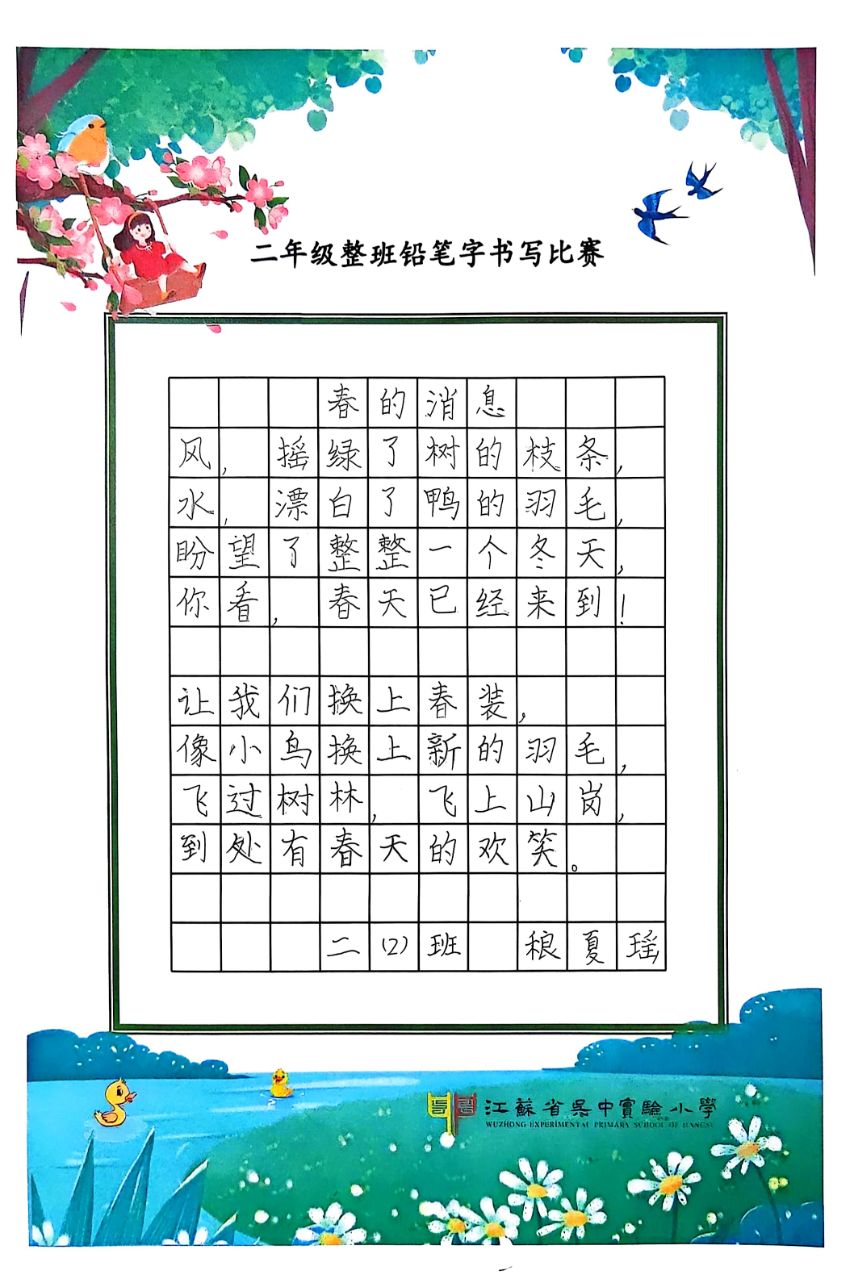 二年级整班铅笔字书写比赛
春的消息
风，摇绿了树的枝条，
水，漂白了鸭的羽毛，
盼望了整整一个冬天，
你看，春天已经来到！
让我们换上春装，
像小鸟换上新的羽毛，
飞过树林，飞上山岗，
到处有春天的欢笑。
二（2）班 稂夏瑶
江蘇省吳中實驗小學
WUZHONG EXPERIMENTAL PRIMARY SCHOOL OF JIANGSU